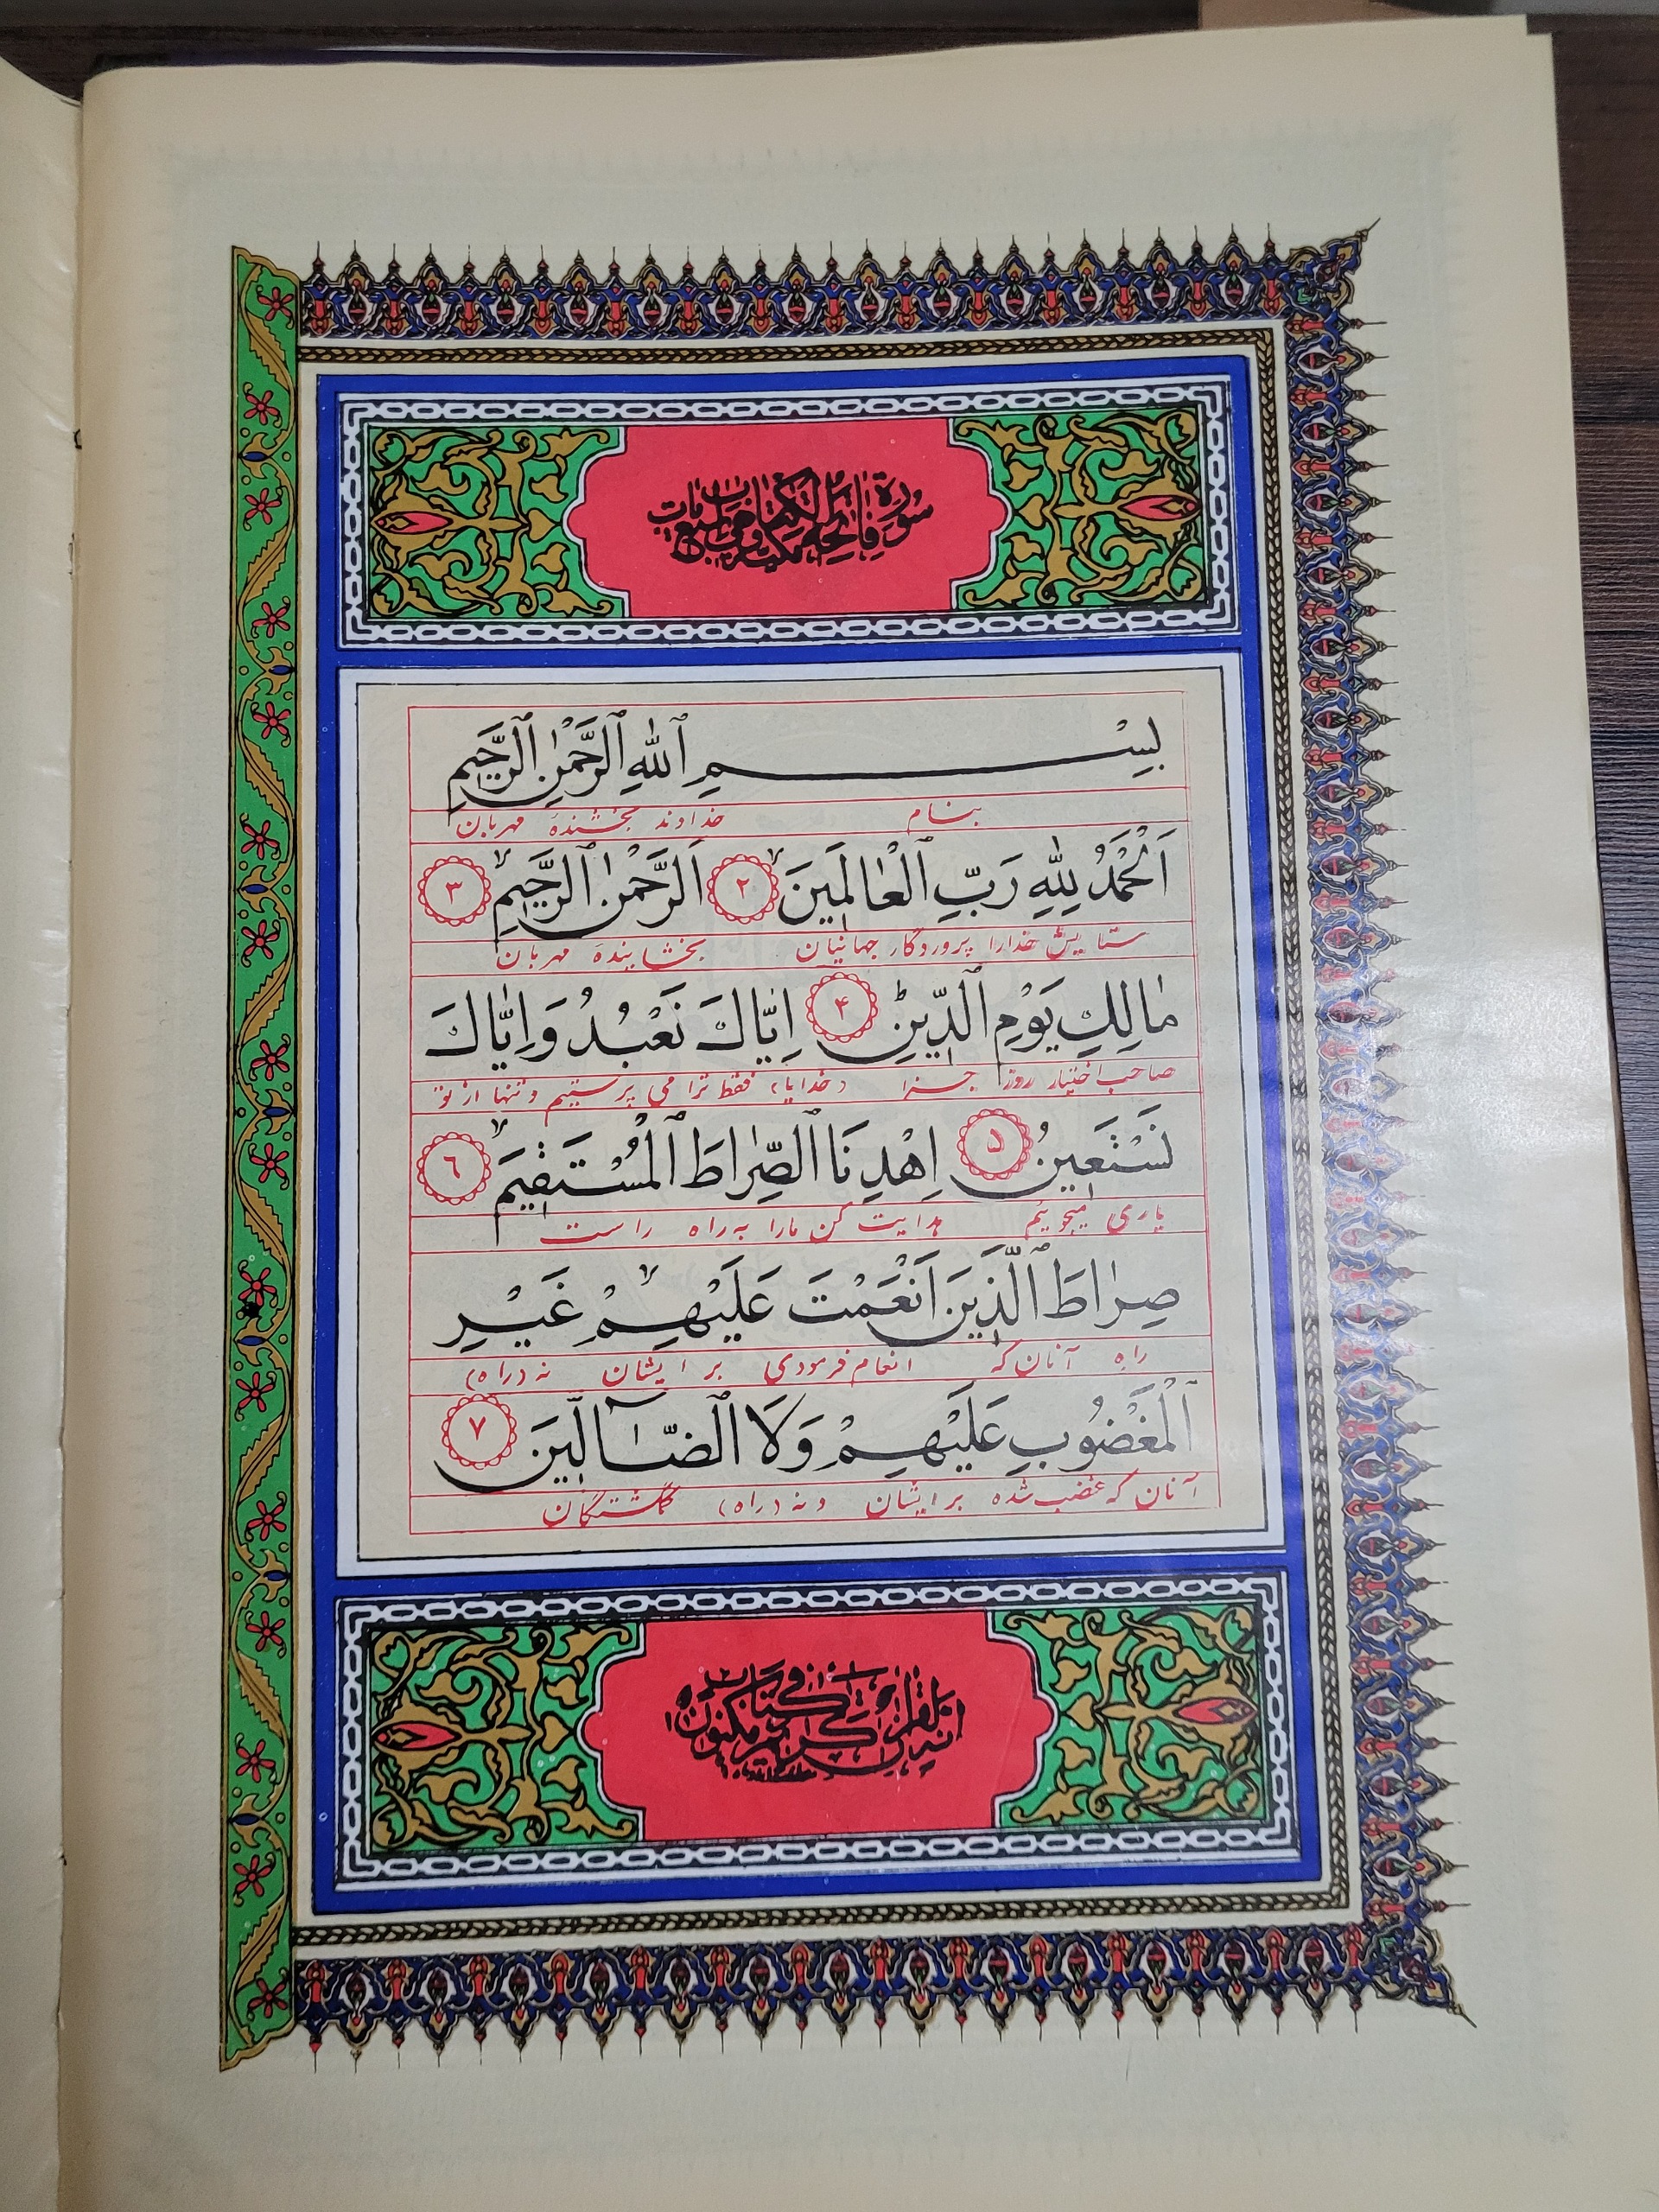 سورة فاتحة الكتاب مكية وهي سبع آيات
بِسْمِ ٱللهِ ٱلرَّحْمٰنِ ٱلرَّحِيمِ
بنام خداوند بخشندهٔ مهربان
اَلْحَمْدُ لِلّٰهِ رَبِّ ٱلْعٰالَمِينَ ۲ اَلرَّحْمٰنِ ٱلرَّحِيمِ ۳
ستایش خدارا پروردگار جهانیان بخشایندهٔ مهربان
مٰالِكِ يَوْمِ ٱلدِّينِ ۴ اِيّٰاكَ نَعْبُدُ وَاِيّٰاكَ
صاحب اختیار روز جزا (خدایا) فقط ترا می پرستیم و تنها از تو
نَسْتَعِينُ ۵ اِهْدِنَا ٱلصِّرٰاطَ ٱلْمُسْتَقِيمَ ٦
یاری میجوئیم هدایت کن مارا به راه راست
صِرٰاطَ ٱلَّذِينَ اَنْعَمْتَ عَلَيْهِمْ غَيْرِ
راه آنان که انعام فرمودی بر ایشان نه (راه)
ٱلْمَغْضُوبِ عَلَيْهِمْ وَلَا ٱلضّٰٓالِّينَ ۷
آنان که غضب شده بر ایشان و نه (راه) گمگشتگان
انه لقرآن كريم في كتاب مكنون